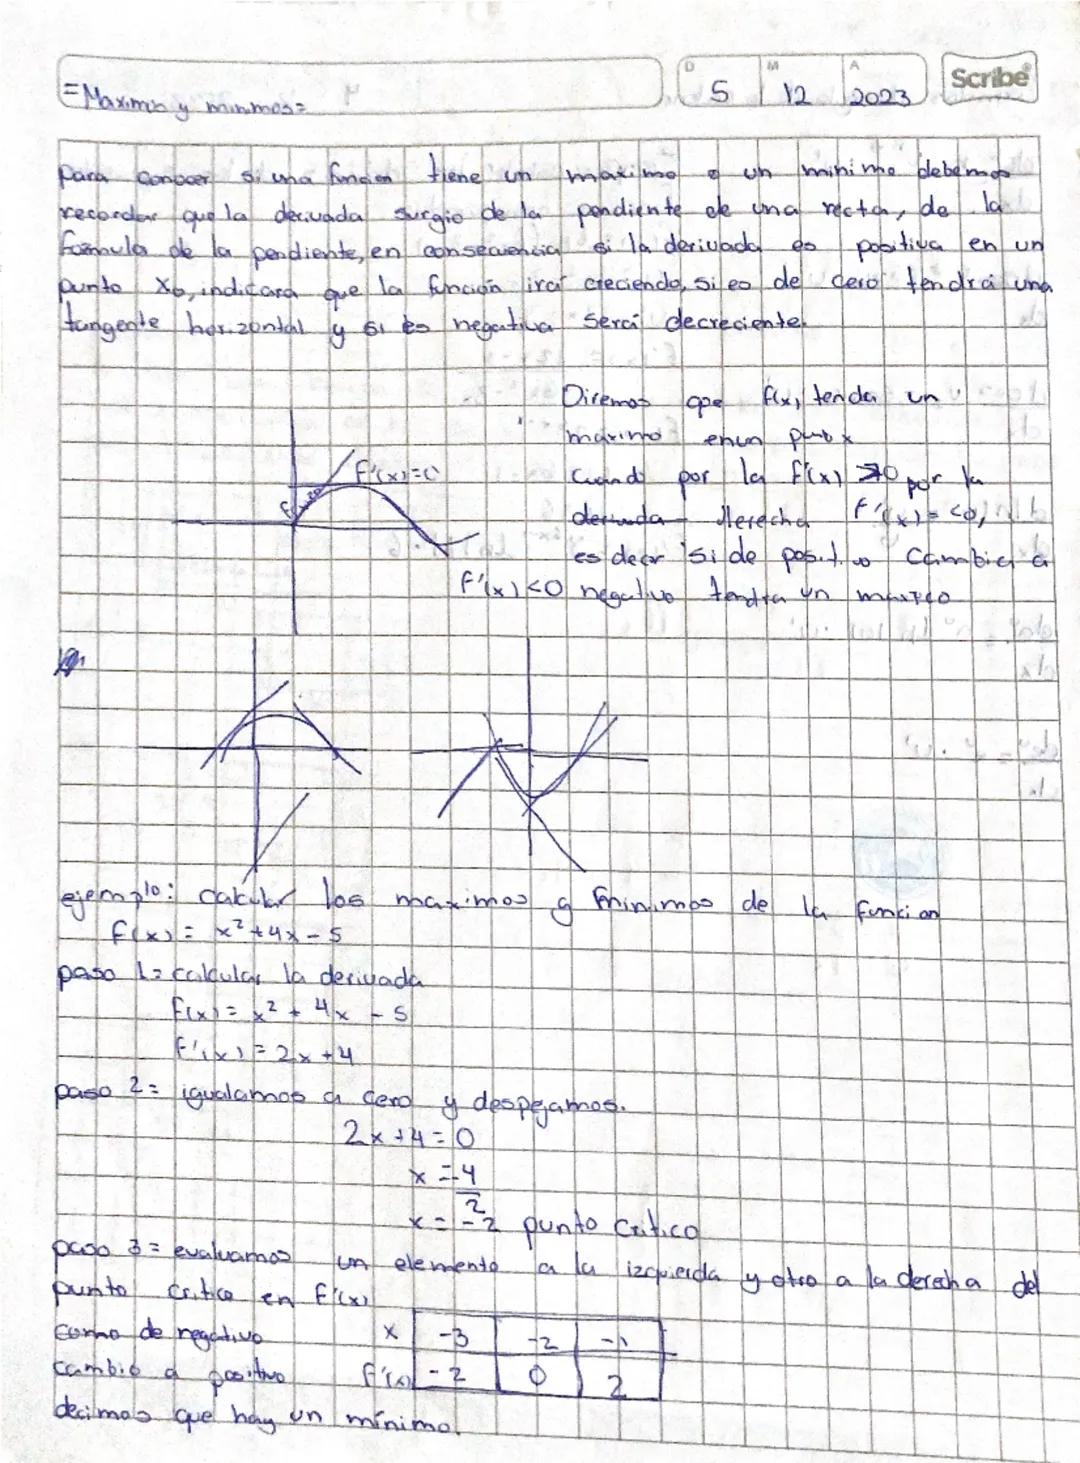 = Maximos y minimos =
D 5 M 12 A 2023 Scribe
para conocer si una funcion tiene un maximo o un minimo debemos
recordar que la derivada surgio de la pendiente de una recta, de la
formula de la pendiente, en consecuencia si la derivada es positiva en un
punto x₀, indicara que la función irá creciendo, si es de cero tendrá una
tangente horizontal y si es negativa será decreciente.
Diremos que f(x) tenda un
maximo en un punto x
f'(x)=0
Cuando por la f'(x) >0 por la
derivada derecha f'(x)= <0,
es decir si de positivo cambia a
f'(x)<0 negativo tendra un
ejemplo: calcular los maximos y minimos de la funcion
f(x) = x²+4x-5
paso 1= calcular la derivada
f(x) = x² + 4x - 5
f'(x) = 2x +4
paso 2= igualamos a cero y despejamos.
2x+4=0
x = -4
2
x = -2 punto critico
paso 3= evaluamos un elemento a la izquierda y otro a la derecha del
punto critico en f'(x)
como de negativo x -3 -2 -1
cambio a positivo f'(x) -2 0 2
decimos que hay un mínimo.